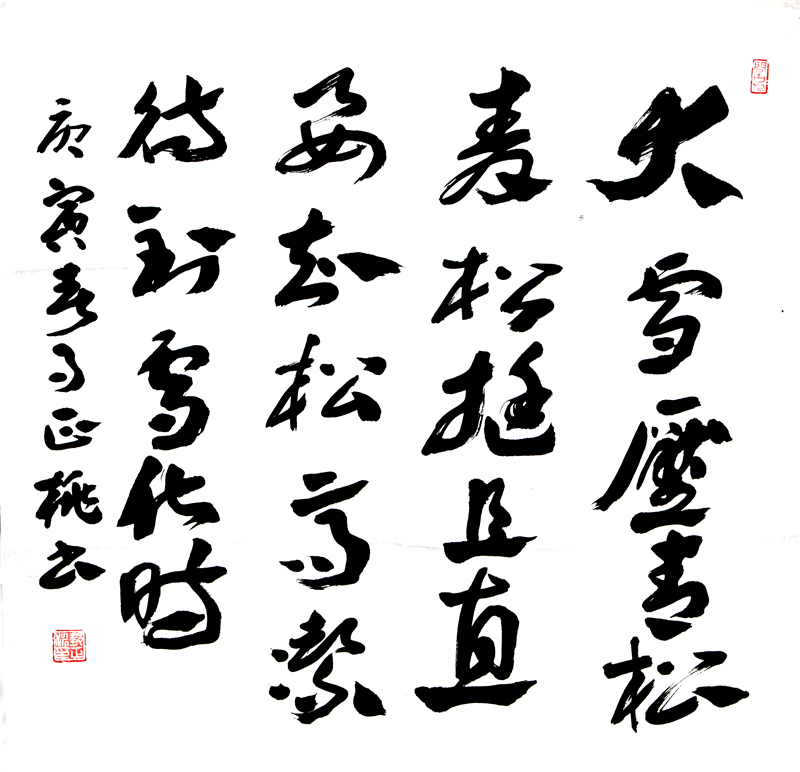 大雪壓青松
青松挺且直
要知松高潔
待到雪化时
庚寅春正桃书